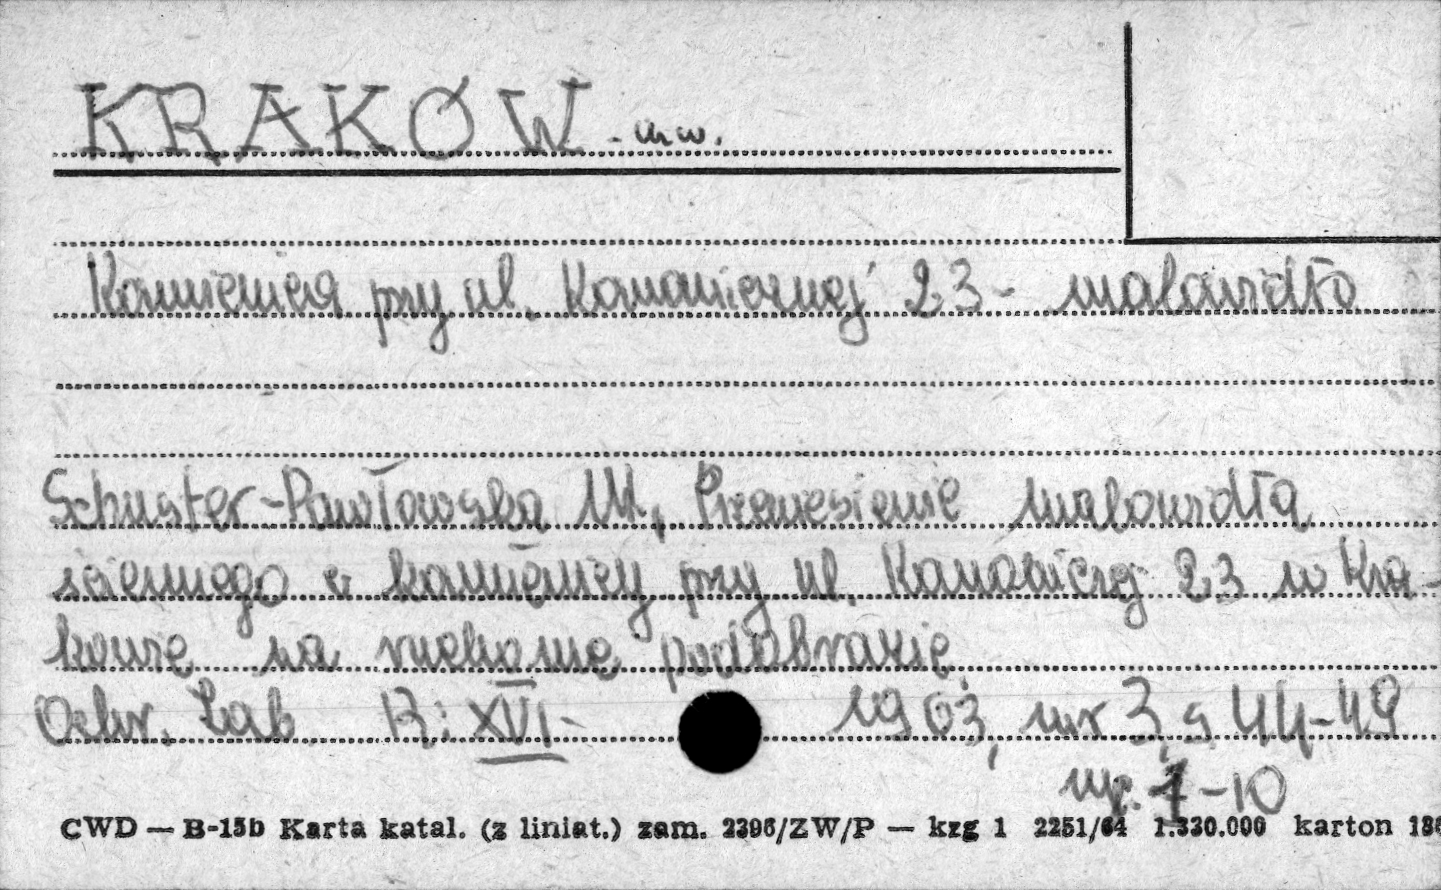 KRAKÓW - m.w.
Kamienica przy ul. Kanonicznej 23 - malowidło
Schuster-Pawłowska M., Przeniesienie malowidła
ściennego z kamienicy przy ul. Kanoniczej 23 w Kra-
kowie na ruchome podobrazie.
Ochr. Zab. R: XVI - 1963, nr 3, s. 44-49
ryc. 1-10
CWD — B-15b Karta katal. (z liniat.) zam. 2396/ZW/P — kzg 1 2251/64 1.330.000 karton